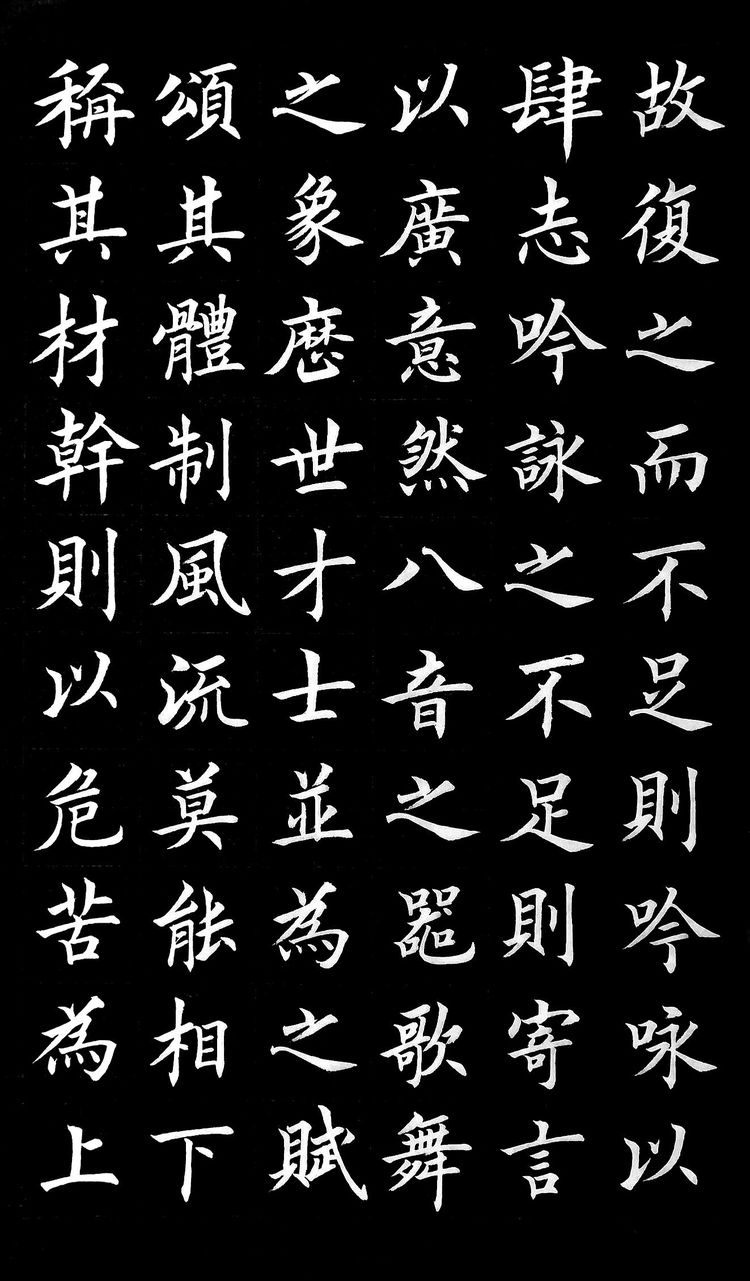 故復之而不足則吟咏以
肆志吟詠之不足則寄言
以廣意然八音之器歌舞
之象歷世才士並為之賦
頌其體制風流莫能相下
稱其材幹則以危苦為上